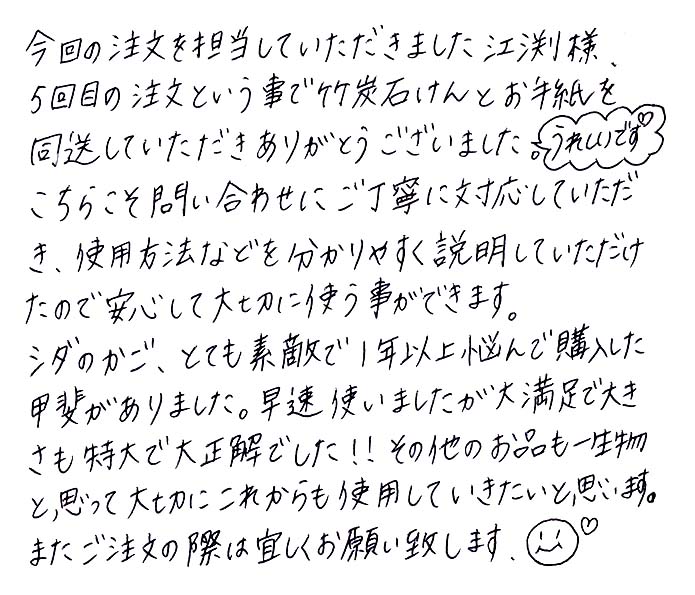 今回の注文を担当していただきました江渕様、
5回目の注文という事で竹炭石けんとお手紙を
同送していただきありがとうございました。うれしいです♡
こちらこそ問い合わせにご丁寧に対応していただ
き、使用方法などを分かりやすく説明していただけ
たので安心して大切に使う事ができます。
シダのかご、とても素敵で1年以上悩んで購入した
甲斐がありました。早速使いましたが大満足で大き
さも特大で大正解でした!!その他のお品も一生物
と思って大切にこれからも使用していきたいと思います。
またご注文の際は宜しくお願い致します、♡